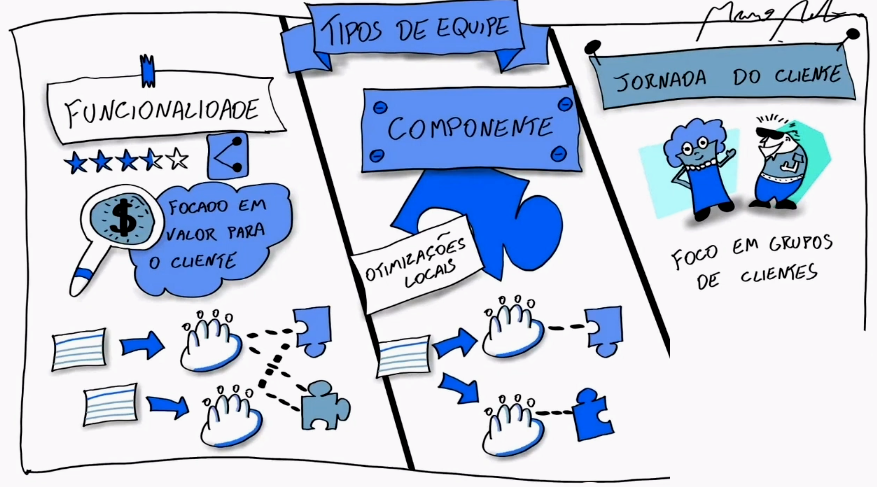 TIPOS DE EQUIPE
FUNCIONALIDADE
$
FOCADO EM
VALOR PARA
O CLIENTE
COMPONENTE
OTIMIZAÇÕES
LOCAIS
JORNADA DO CLIENTE
FOCO EM GRUPOS
DE CLIENTES